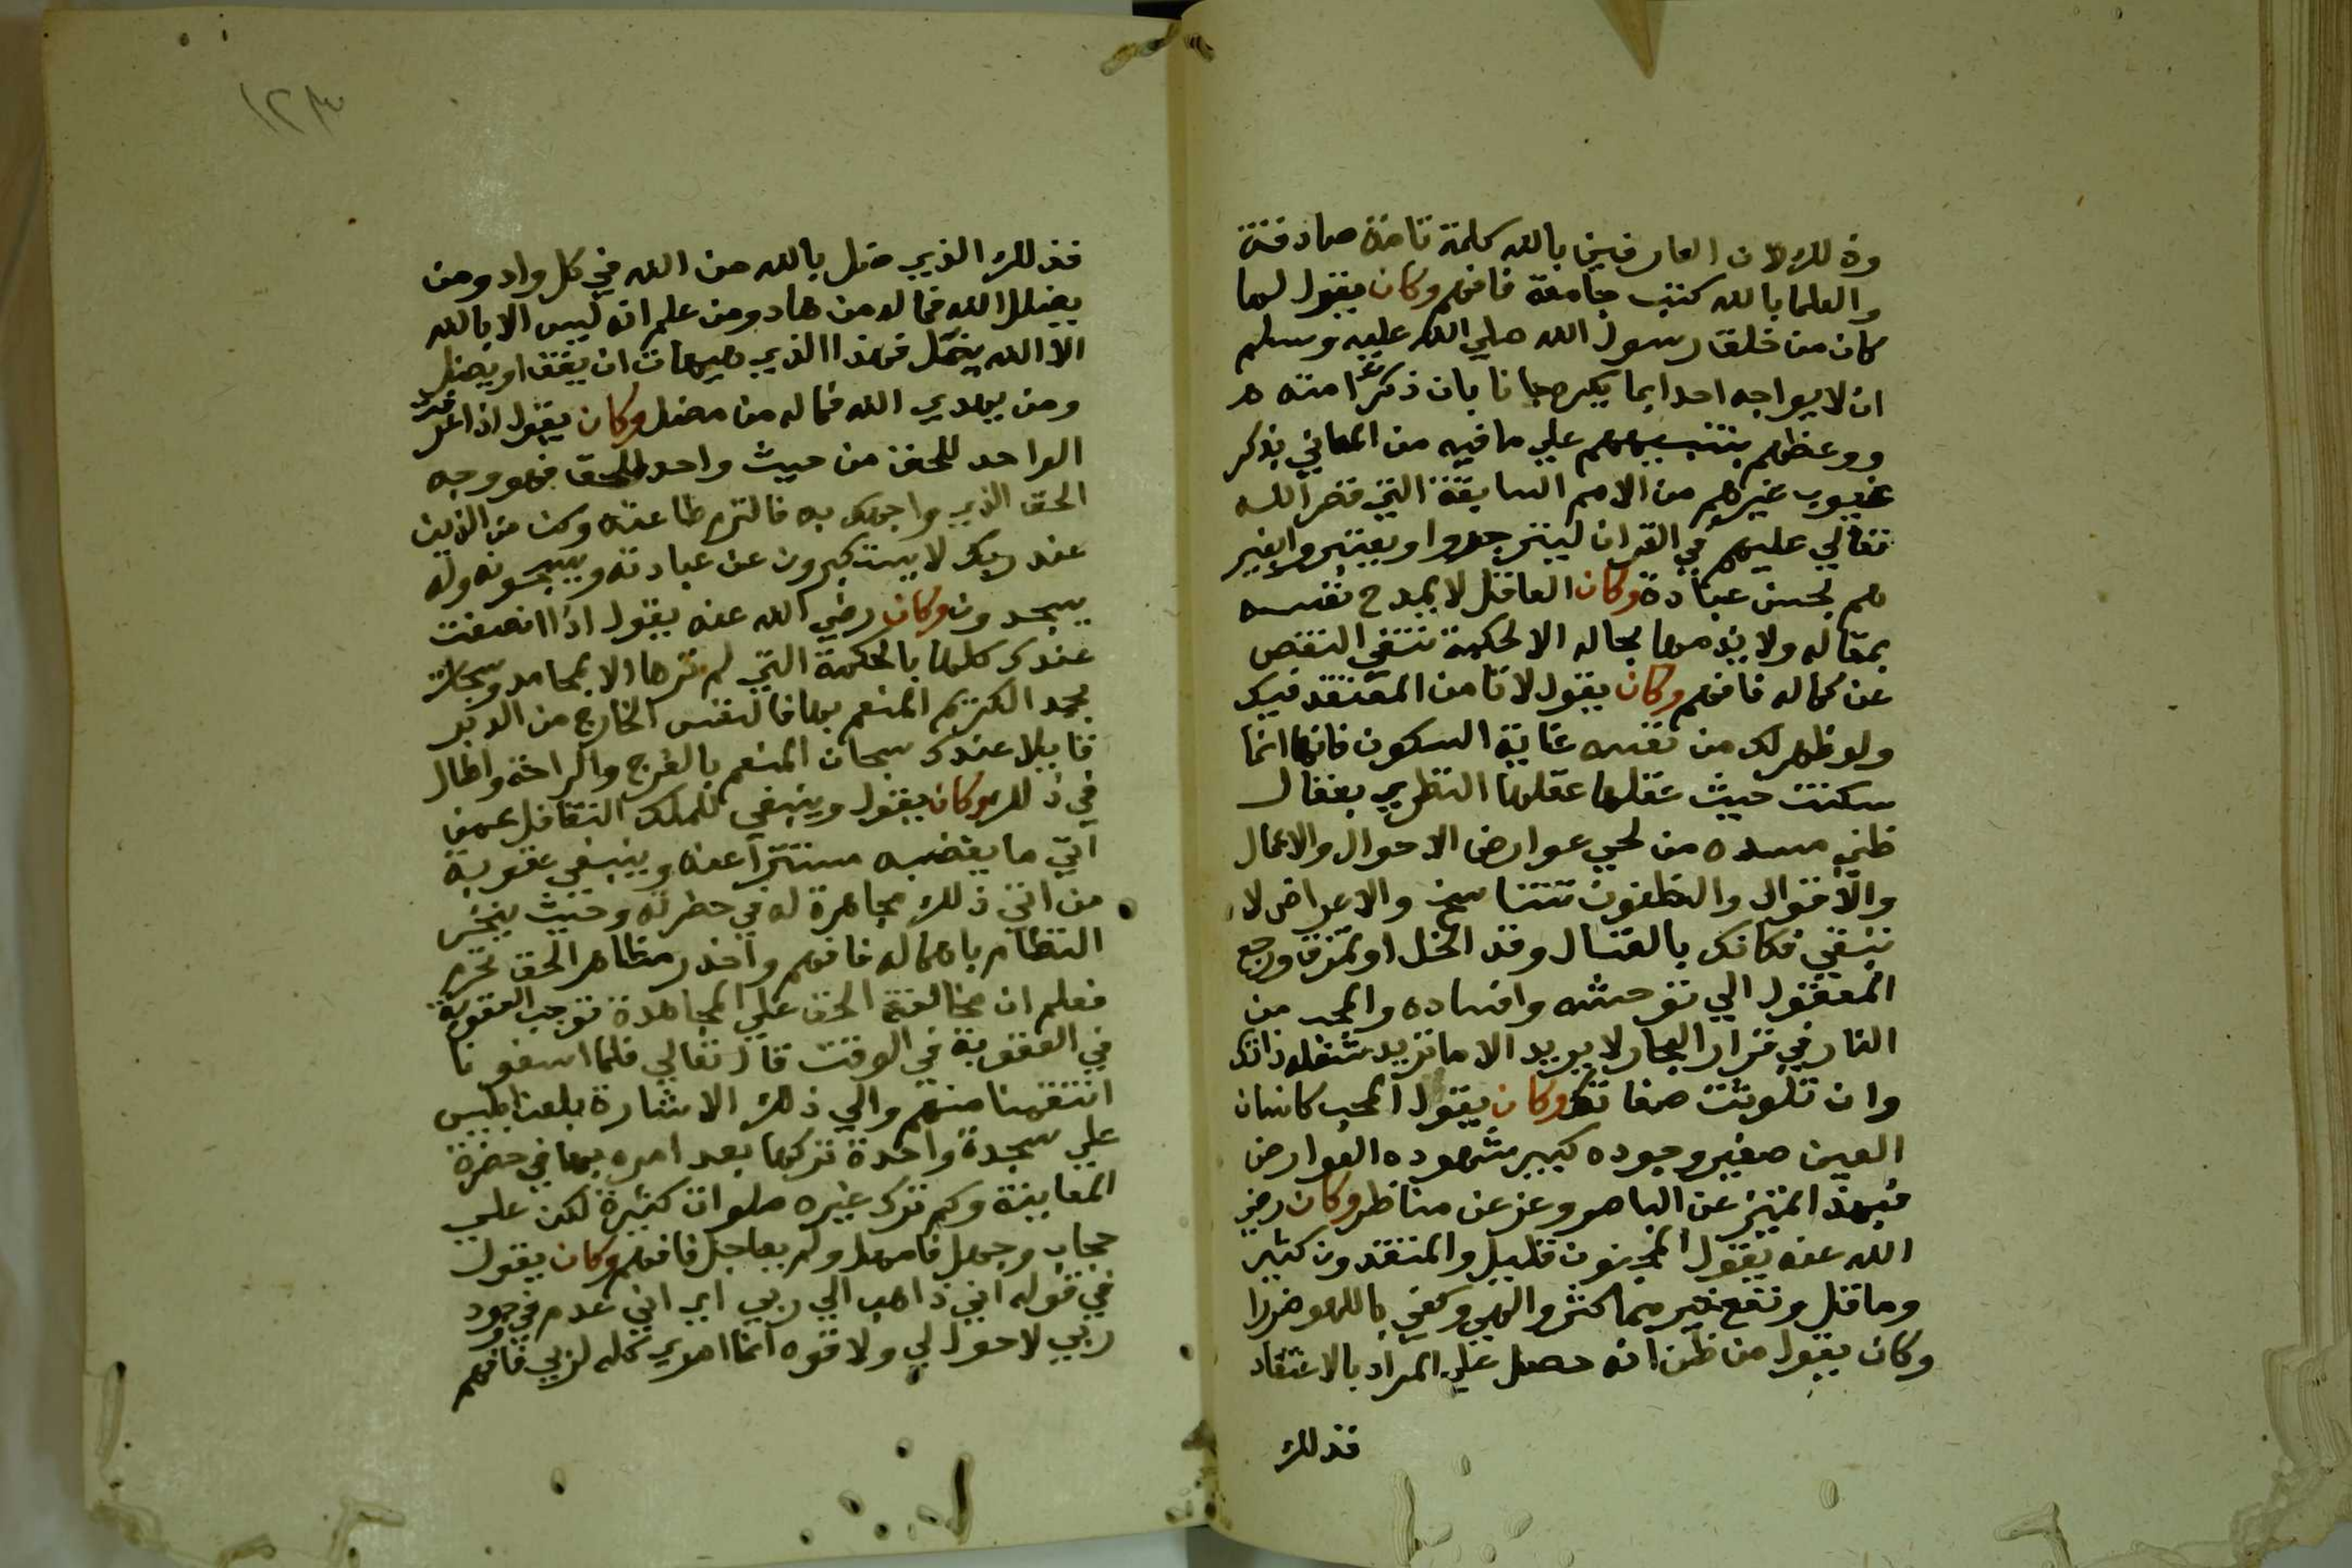 وذلك لان العارفين بالله كلمة تامة صادقة
والعلما بالله كتب جامعة فافهم وكان يقول لما
كان من خلق رسول الله صلي الله عليه وسلم
ان لا يواجه احدا بما يكره جانا بان ذكر امته
ووعظهم بتنبيههم علي ما فيه من المعاني بذكر
عيوب غيرهم من الامم السابقة التي قص الله
تعالي عليهم في القران لينزجروا ويعتبروا بغير
هم بحسن عبادة وكان العاقل لا يمدح نفسه
بمقاله ولا يذمها بحاله الا لحكمة تنفي النقص
عن كماله فافهم وكان يقول لا تامن المعتقد فيك
ولو ظهر لك من نفسه غاية السكون فانها انما
سكنت حيث عقلها عقلها النظري بعقال
ظني مسده من لحي عوارض الاحوال والاعمال
والاقوال والظنون تتناسخ والاعراض لا
تبقي فكانك بالعقال وقد انحل او تمزق ورجع
المعقول الي توحشه وافساده والمحب من
النار في قرار البحار لا يريد الا ما تريد شغله ذاتك
وان تلونت صفاتك وكان يقول المحب كانسان
العين صغير وجوده كبير شهوده العوارض
فبهذا تميز عن الباصر وعز عن مناظر وكان رضي
الله عنه يقول المحبون قليل والمنتقدون كثير
وما قل ونفع خير مما كثر والهي وكفي باللهو ضررا
وكان يقول من ظن انه حصل علي المراد بالاعتقاد
فذلك
١٢٣
فذلك الذي ضل بالله من الله في كل واد ومن
يضلل الله فما له من هاد ومن علم انه ليس الا بالله
الا الله يتحمل فهذا الذي هيهات ان يقف او يضل
ومن يهدي الله فما له من مضل وكان يقول اذا تجرد
الواحد للحق من حيث واحد للحق فهو وجه
الحق الذي واجهك به فالتزم طاعته وكن من الذين
عند ربك لا يستكبرون عن عبادته ويسبحونه وله
يسجدون وكان رضي الله عنه يقول اذا اتصفت
عندك كلها بالحكمة التي لم ترها الا بمحامد وسبحات
بحمد الكريم المنعم بها فالنفس الخارج من الدبر
قايلا عندك سبحان المنعم بالفرج والراحة واطال
في ذلك وكان يقول وينبغي للملك التغافل عمن
اتي ما يغضبه مستترا عنه وينبغي عقوبة
من اتي ذلك مجاهرة له في حضرته وحيث ينخرم
النظام باهماله فافهم واحذر مظاهر الحق تحرم
فعلم ان مخالفة الحق علي المجاهدة توجب العقوبة
في العقوبة في الوقت قال تعالي فلما اسفونا
انتقمنا منهم والي ذلك الاشارة بلعن ابليس
علي سجدة واحدة تركها بعد امره بها في حضرة
المعاينة وكم ترك غيره صلوات كثيرة لكن علي
حجاب وجهل فامهل ولم يعاجل فافهم وكان يقول
في قوله اني ذاهب الي ربي اي اني عدم في وجود
ربي لا حول لي ولا قوة انما امري كله لربي فافهم